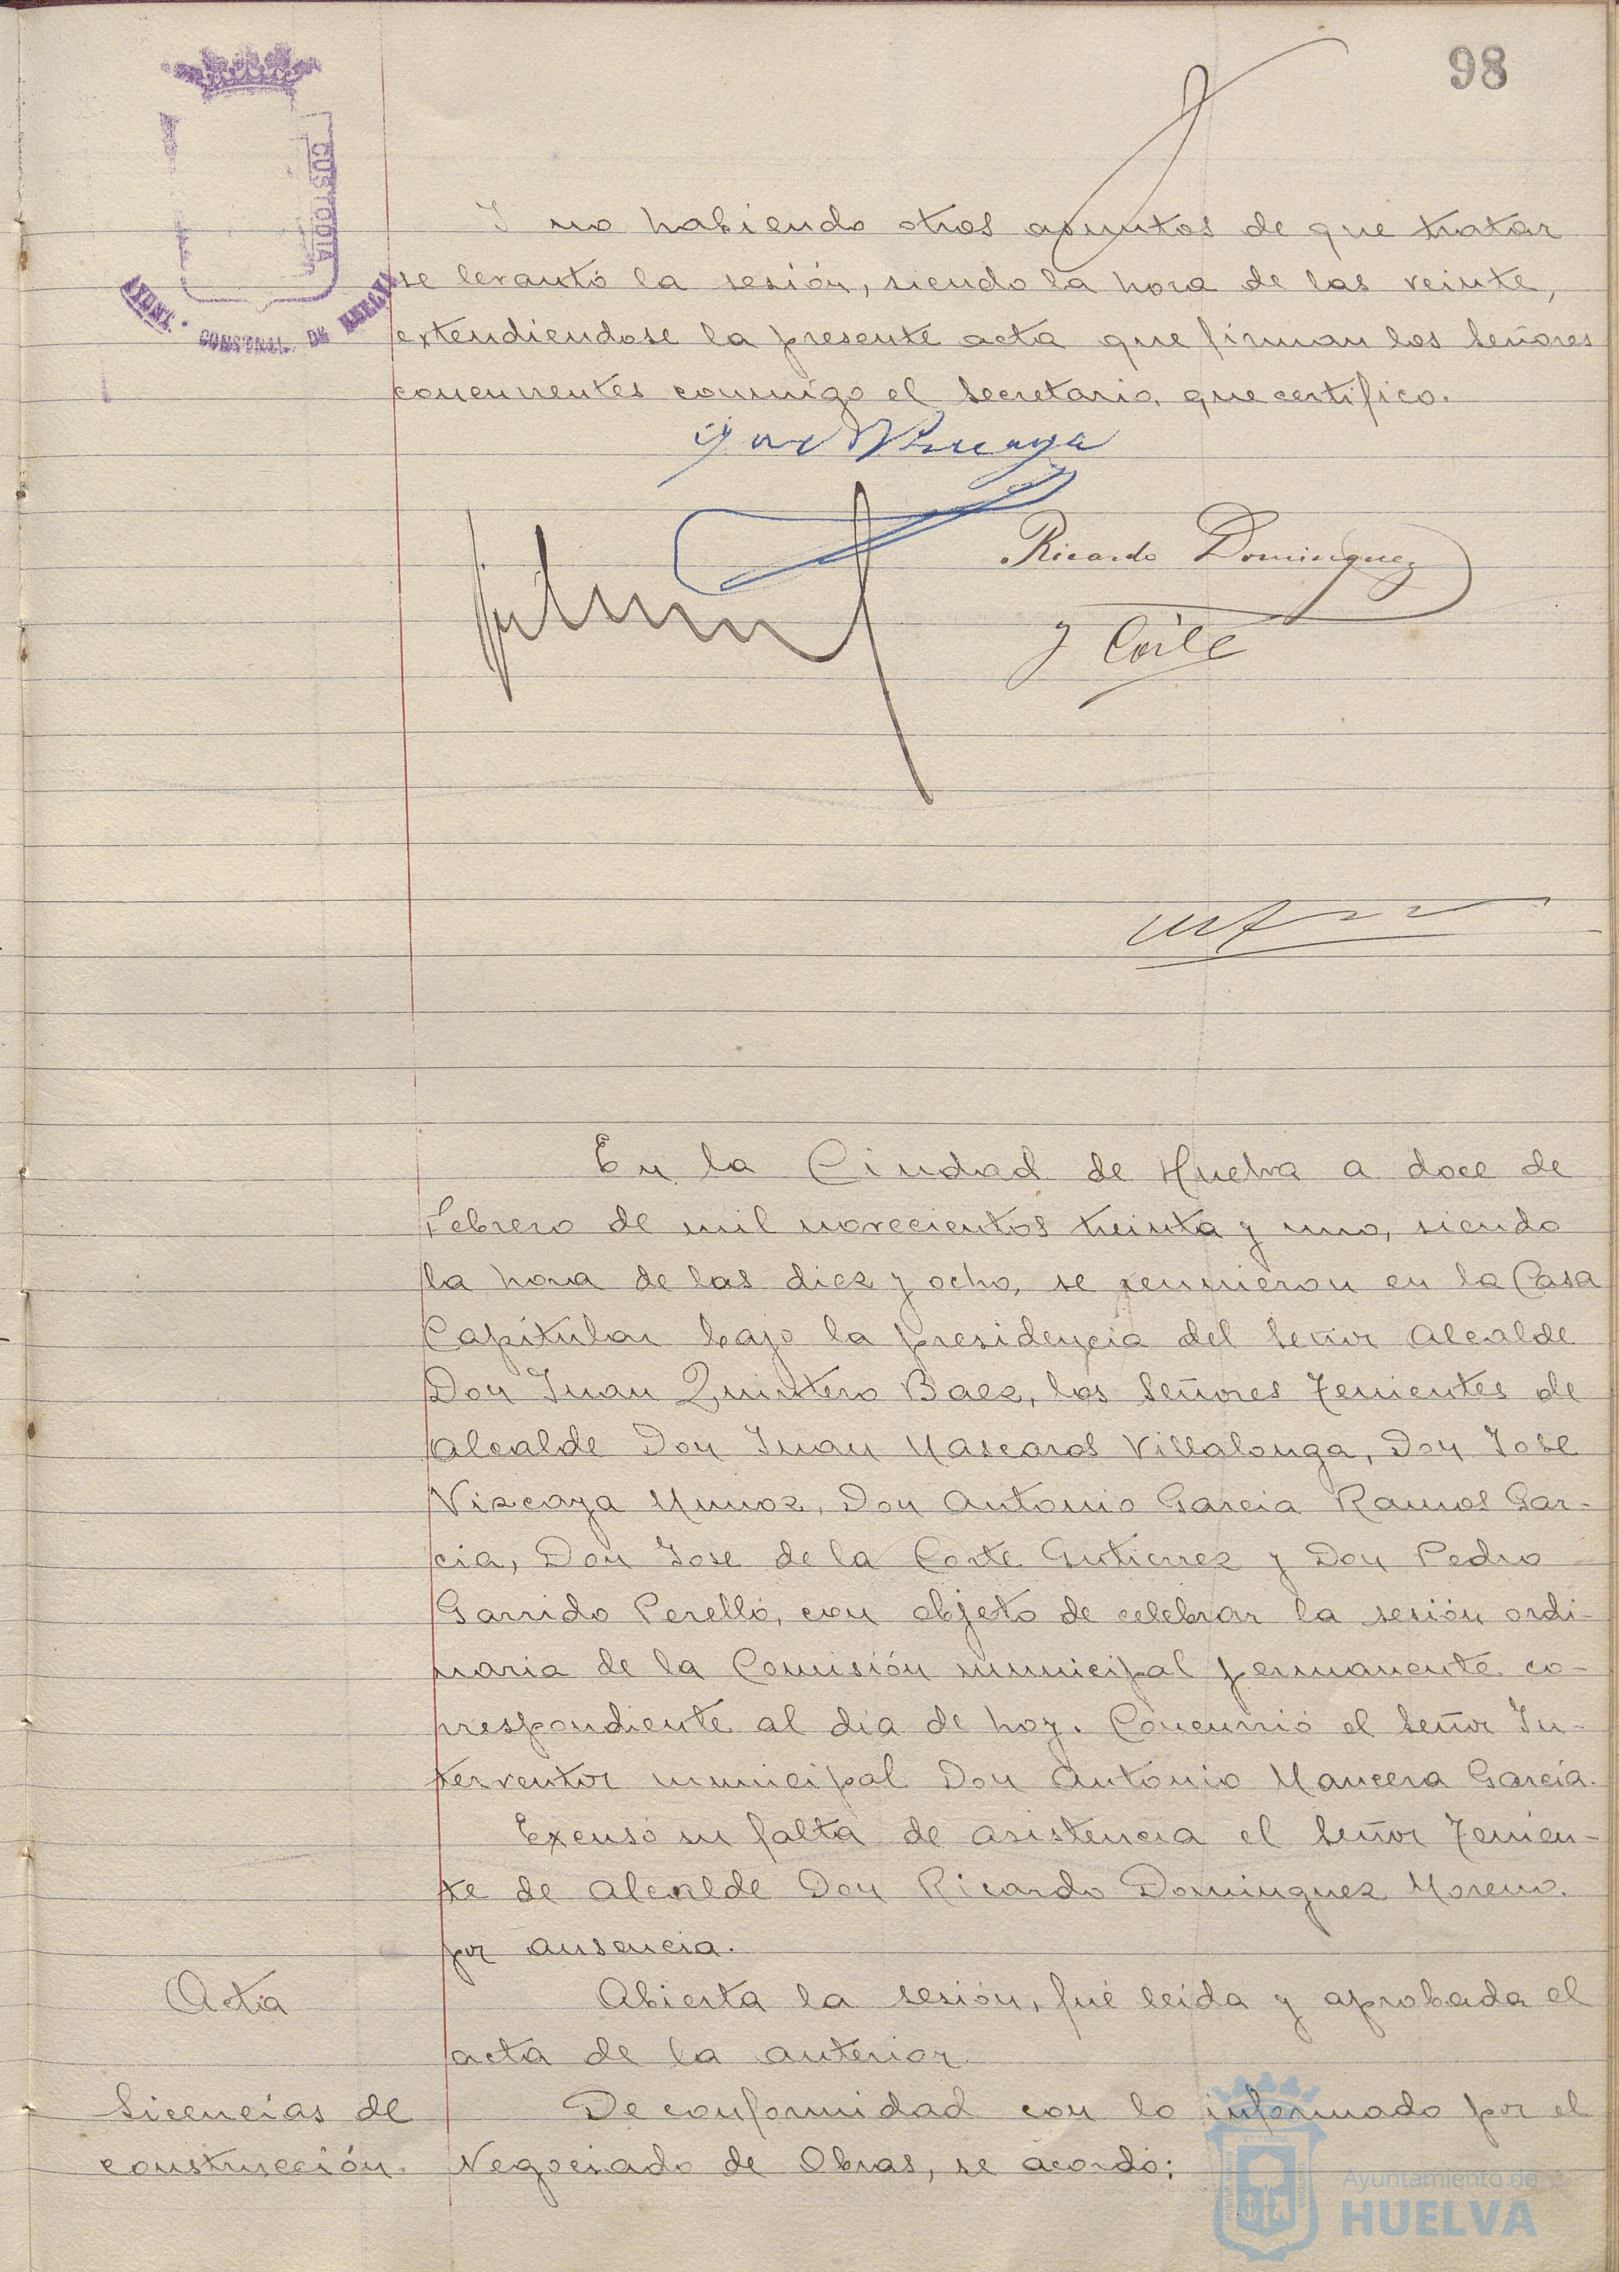 98
CUSTODIA
AYUNT. CONSTNAL. DE HUELVA
Y no habiendo otros asuntos de que tratar
se levantó la sesión, siendo la hora de las veinte,
extendiendose la presente acta que firman los Señores
concurrentes conmigo el Secretario, que certifico.
Ricardo Dominguez
J Corte
En la Ciudad de Huelva a doce de
Febrero de mil novecientos treinta y uno, siendo
la hora de las diez y ocho, se reunieron en la Casa
Capitular bajo la presidencia del Señor Alcalde
Don Juan Quintero Baez, los Señores Tenientes de
Alcalde Don Juan Mascaros Villalonga, Don Jose
Vizcaya Munoz, Don Antonio Garcia Ramos Gar-
cia, Don Jose de la Corte Gutierrez y Don Pedro
Garrido Perelló, con objeto de celebrar la sesión ordi-
naria de la Comisión municipal permanente co-
rrespondiente al dia de hoy. Concurrió el Señor In-
terventor municipal Don Antonio Mancera Garcia.
Excusó su falta de asistencia el Señor Tenien-
te de Alcalde Don Ricardo Dominguez Moreno,
por ausencia.
Acta
Abierta la sesión, fué leída y aprobada el
acta de la anterior.
Licencias de
construcción.
De conformidad con lo informado por el
Negociado de Obras, se acordó:
Ayuntamiento de
HUELVA